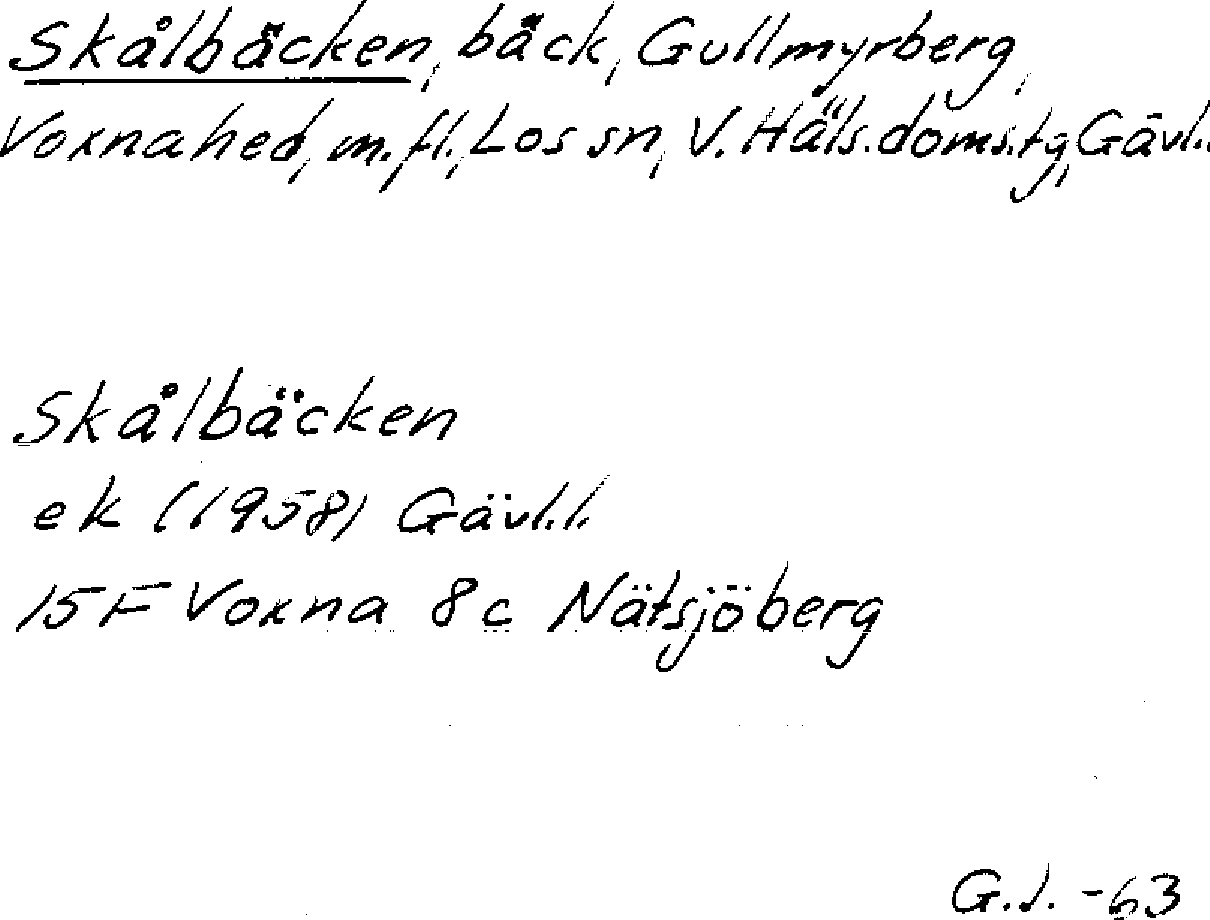 Skålbäcken, bäck, Gullmyrberg,
Voxnahed, m.fl., Los sn, V. Häls. doms.tg, Gävl.
Skålbäcken
ek (1958) Gävl.l.
15F Voxna 8c Nätsjöberg
G.J. -63